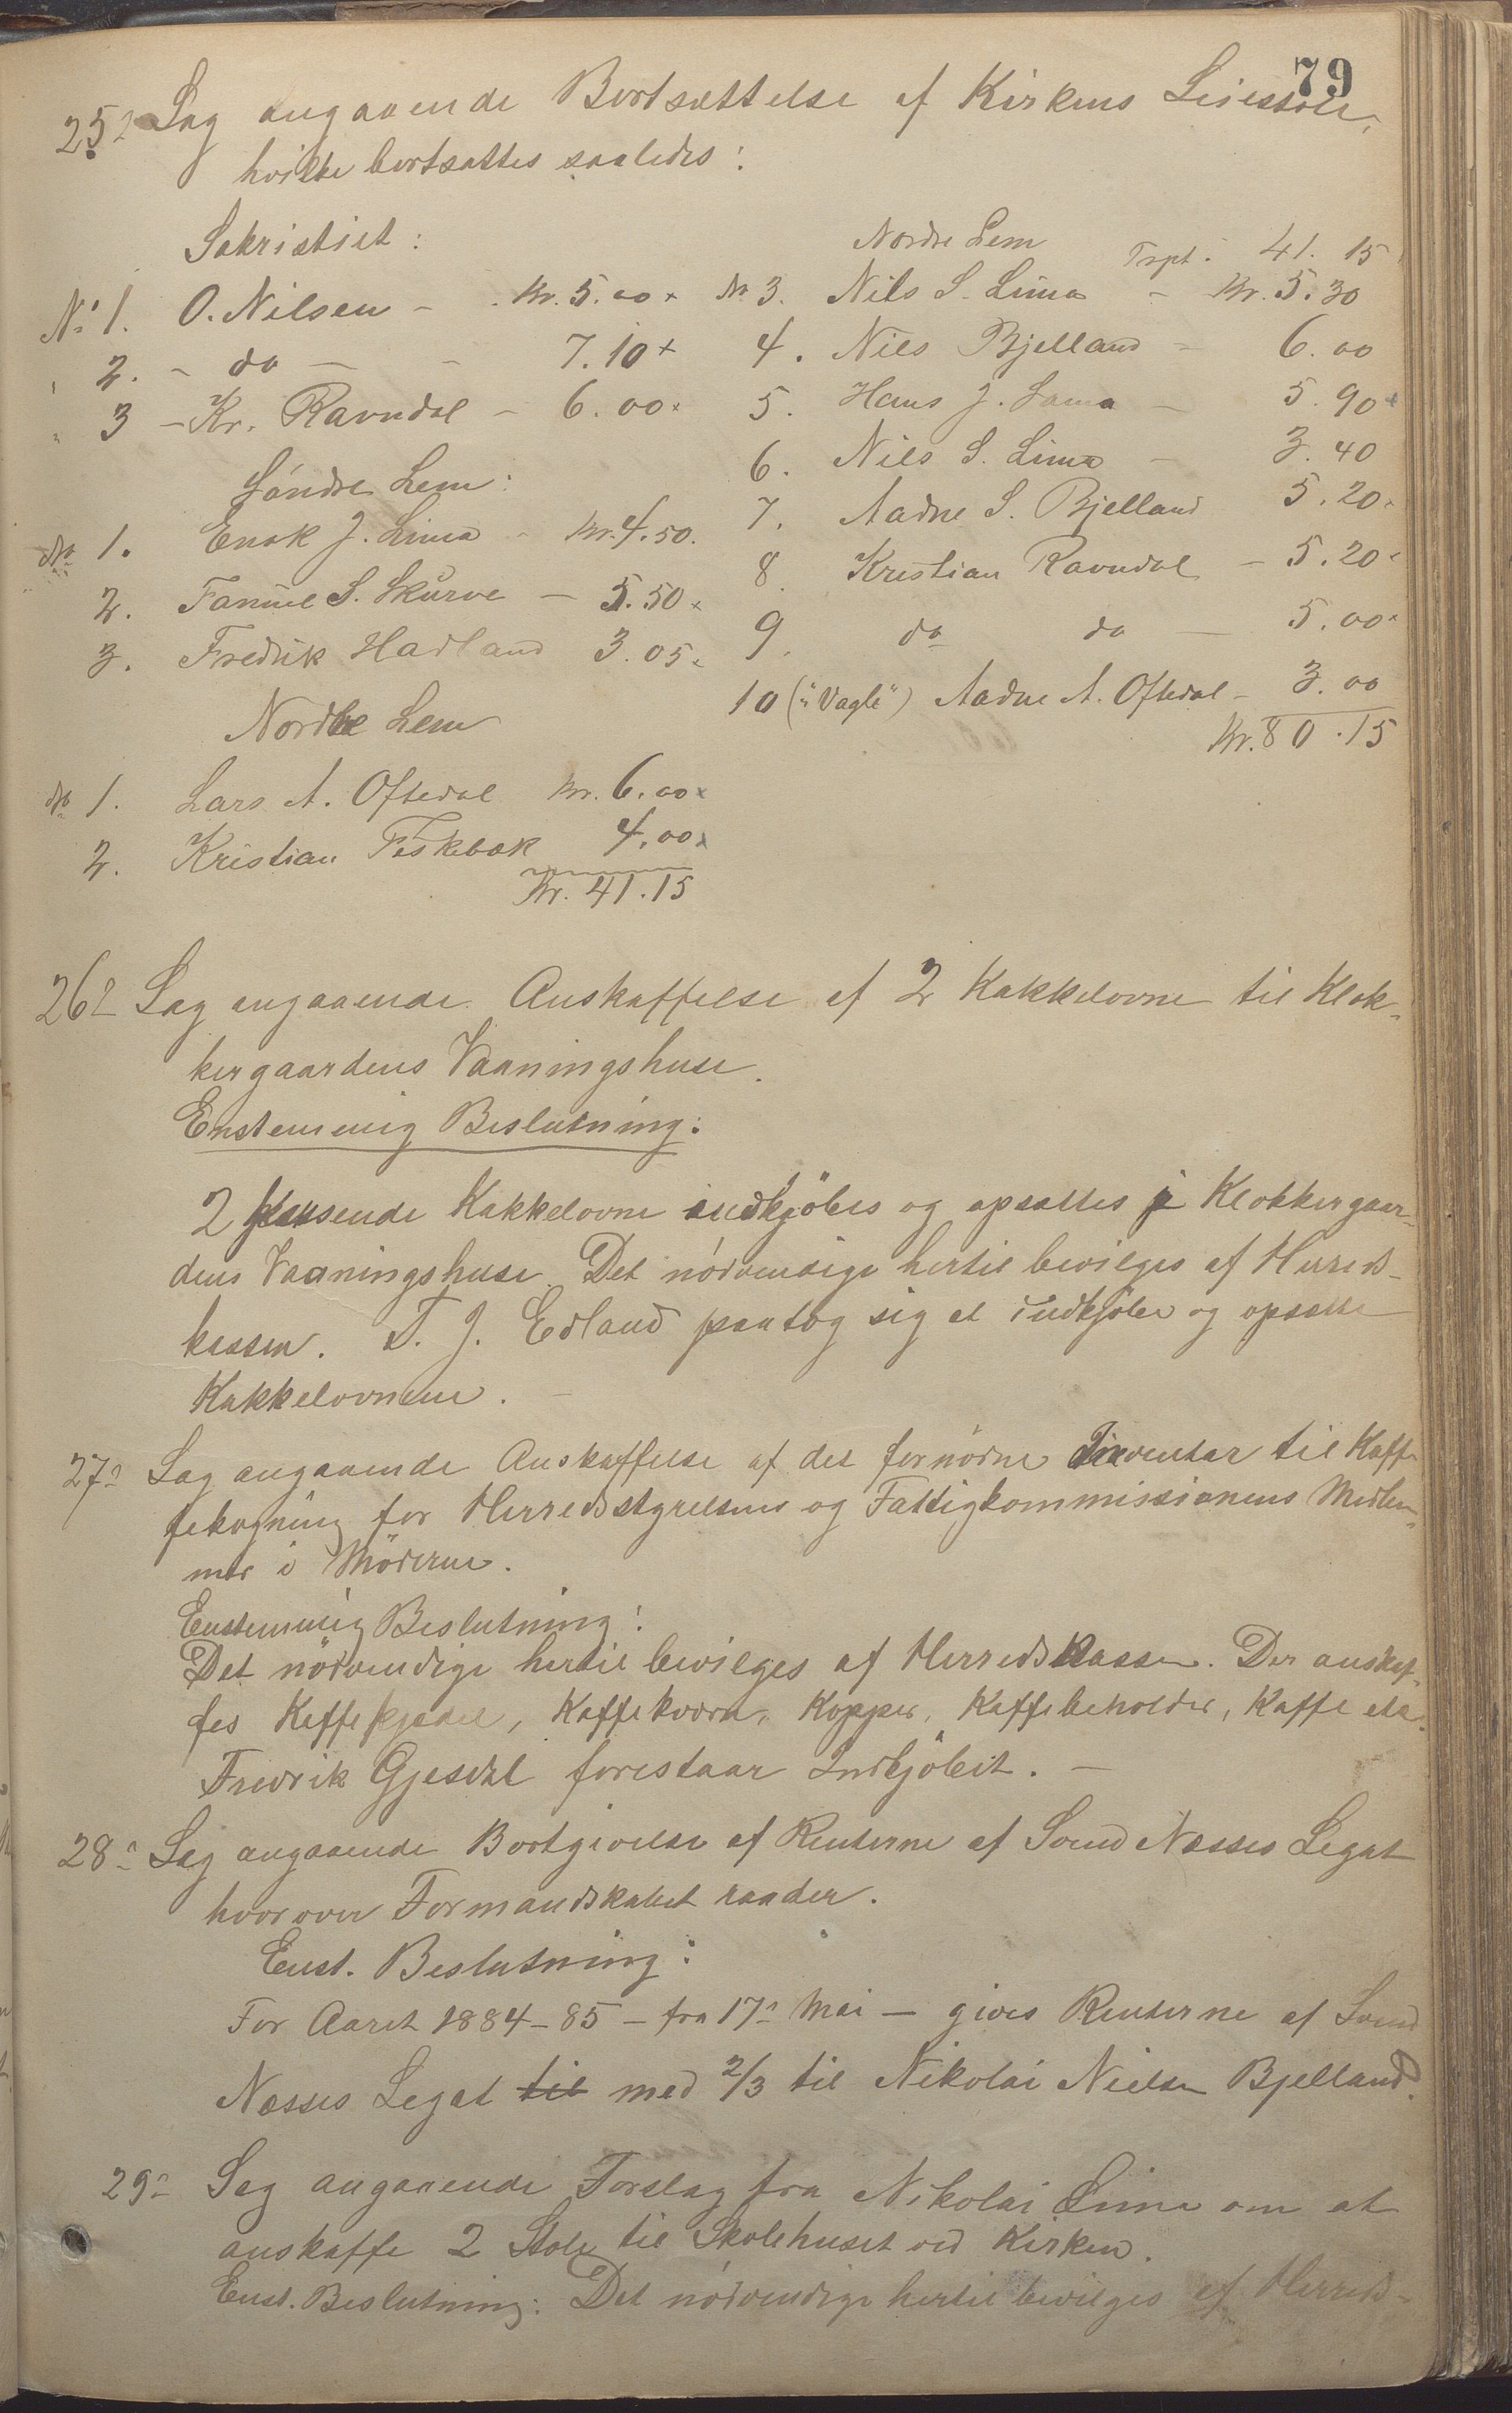 79
25o Sag angaaende Bortsættelse af Kirkens Leiestole,
hvilke bortsattes saaledes:
Sakristiet:
No 1. O. Nilsen - Kr. 5.00 x
" 2. - do - - 7.10 x
" 3 - Kr. Ravndal - 6.00 x
Söndre Lem:
No 1. Enok J. Lima - Kr. 4.50.
2. Fanuel S. Skurve - 5.50 x
3. Fredrik Hadland 3.05 x
Nordre Lem
No 1. Lars A. Oftedal Kr. 6.00 x
2. Kristian Fiskebæk 4.00 x
Kr. 41.15
Nordre Lem Trpt. 41.15
No 3. Nils S. Lima - Kr. 5.30
4. Nils Bjelland - 6.00
5. Hans J. Lima - 5.90 x
6. Nils S. Lima - 3.40
7. Aadne S. Bjelland 5.20 x
8. Kristian Ravndal - 5.20 x
9. do do - 5.00 x
10 ("Vagle") Aadne A. Oftedal - 3.00
Kr. 80.15
26o Sag angaaende Anskaffelse af 2 Kakkelovne til Klok-
kergaardens Vaaningshuse.
Enstemmig Beslutning:
2 passende Kakkelovne indkjöbes og opsættes i Klokkergaar-
dens Vaaningshuse. Det nödvendige hertil bevilges af Herreds-
kassen. T. J. Edland paatog sig at indkjöbe og opsætte
Kakkelovnene. -
27o Sag angaaende Anskaffelse af det fornödne Inventar til Kaf-
fekogning for Herredsstyrelsens og Fattigkommissionens Medlem-
mer i Möderne.
Enstemmig Beslutning:
Det nödvendige hertil bevilges af Herredskassen. Der anskaf-
fes Kaffekjedel, Kaffekværn, Kopper, Kaffebeholder, Kaffe etc.
Fredrik Gjesdal forestaar Indkjöbet. -
28o Sag angaaende Bortgivelse af Renterne af Svend Næsses Legat
hvorover Formandskabet raader.
Enst. Beslutning:
For Aaret 1884-85 - fra 17o Mai - gives Renterne af Svend
Næsses Legat til med 2/3 til Nikolai Nielsen Bjelland.
29o Sag angaaende Forslag fra Nikolai Lima om at
anskaffe 2 Stole til Skolehuset ved Kirken.
Enst. Beslutning: Det nödvendige hertil bevilges af Herreds-